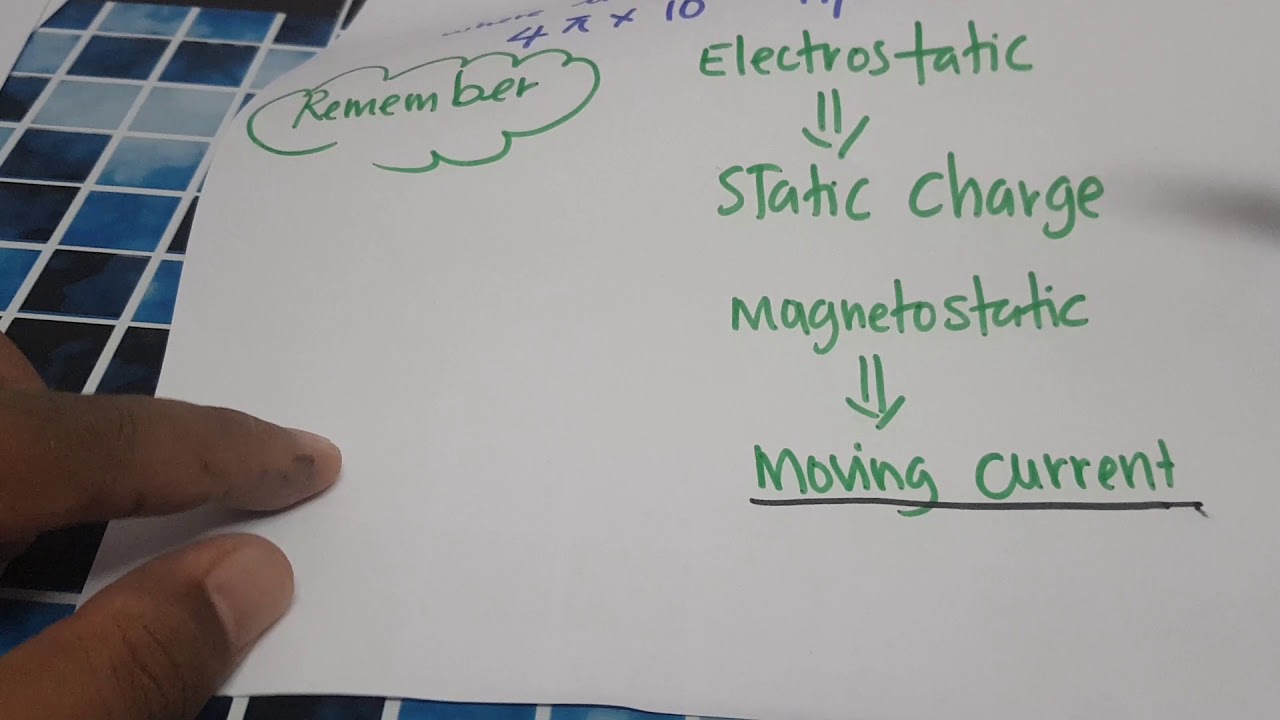 4 π × 10
Remember
Electrostatic
⇓
Static Charge
Magnetostatic
⇓
Moving Current